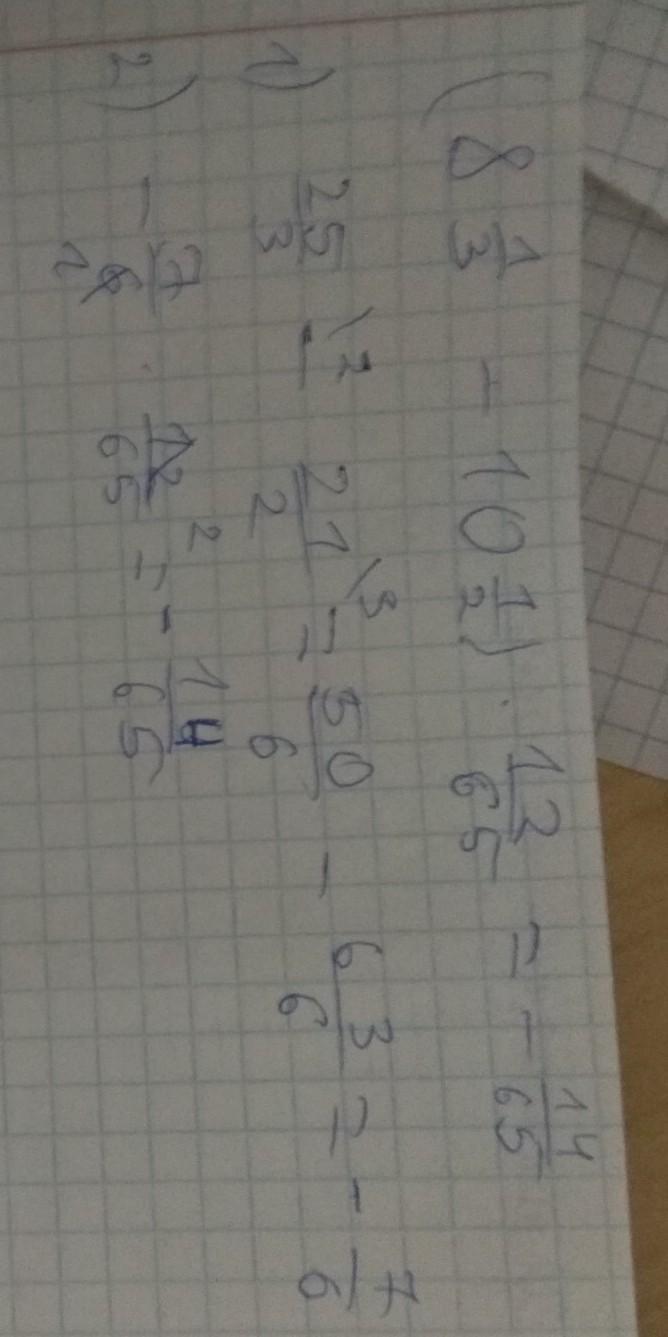 (8 1/3 - 10 1/2) · 12/65 = - 14/65
1) 25/3 \2 - 21/2 \3 = 50/6 - 63/6 = - 7/6
2) - 7/6 1 · 12/65 2 = - 14/65